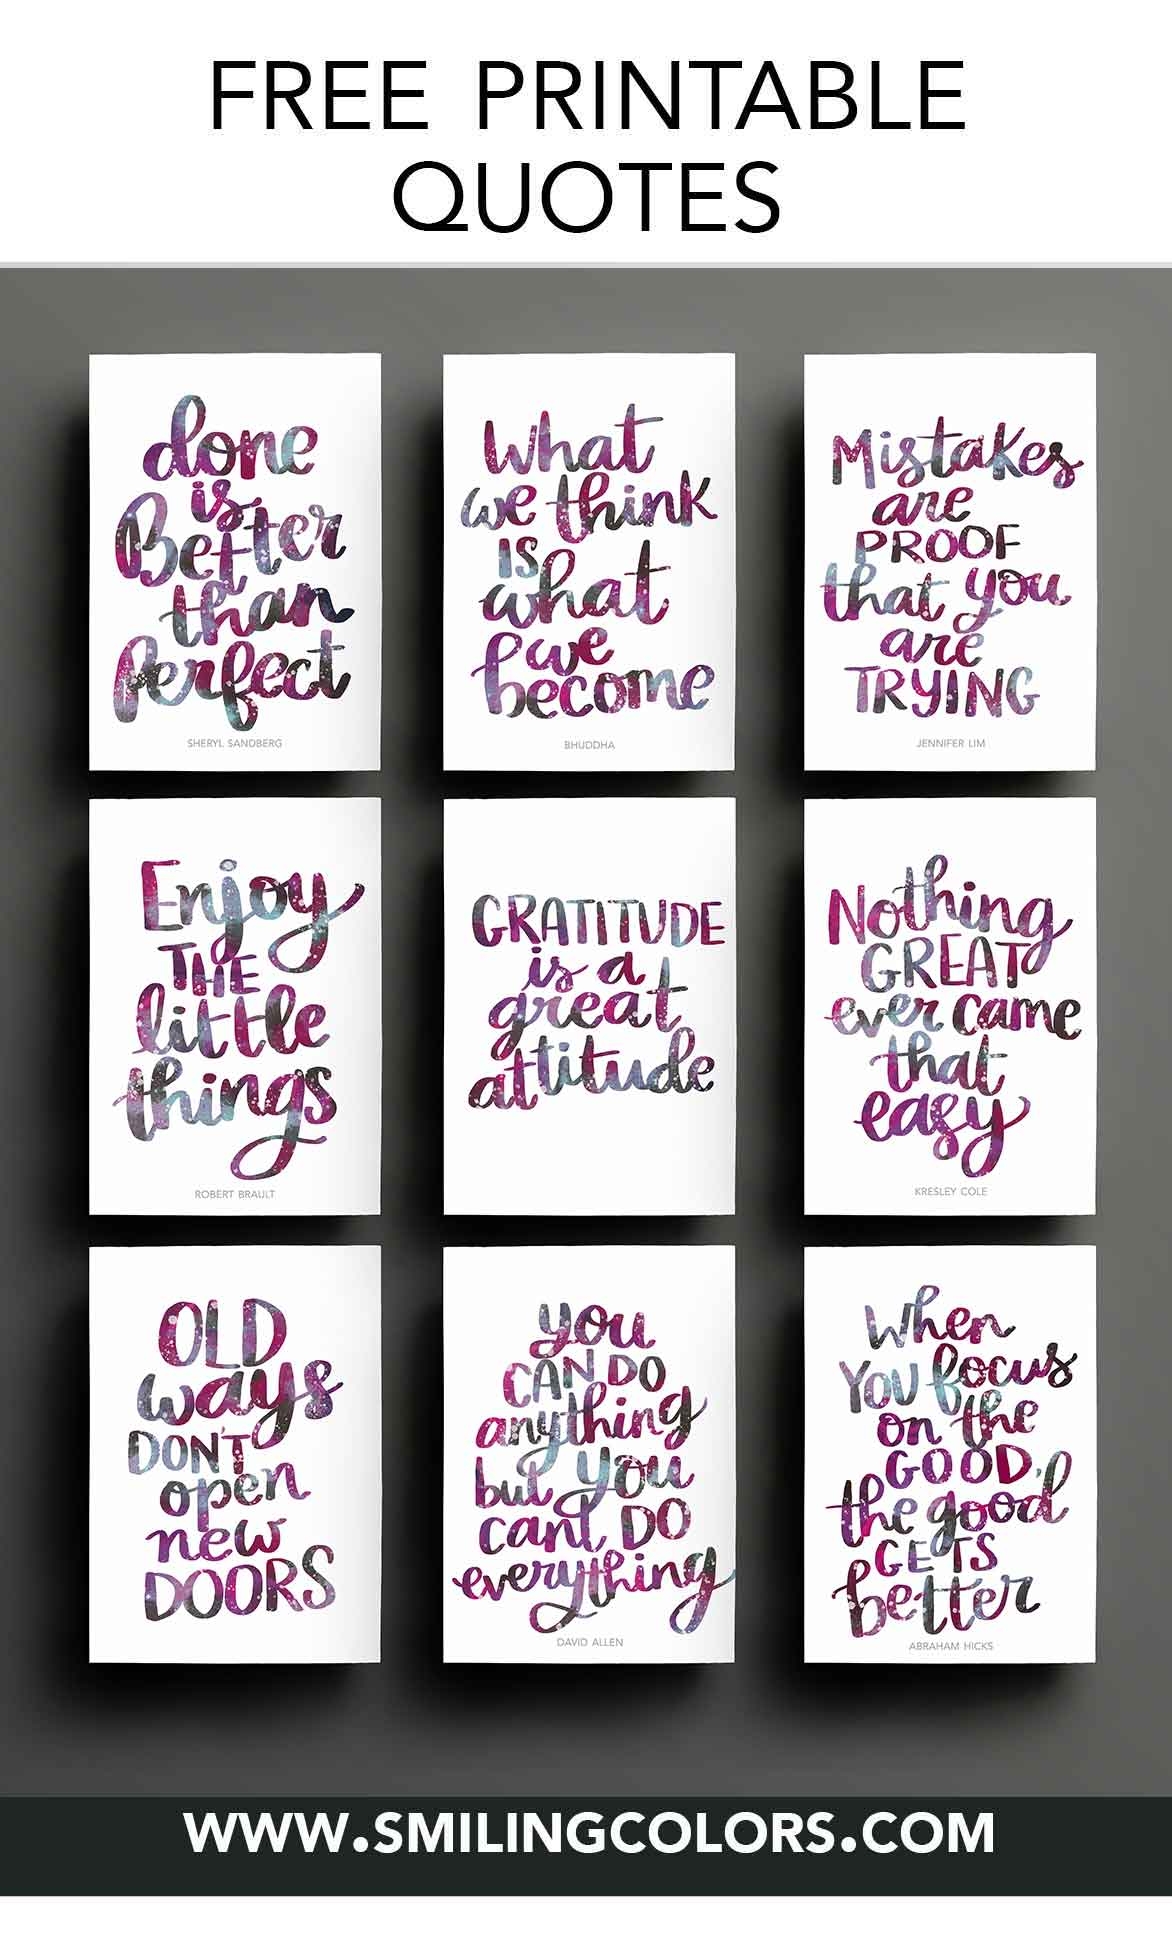 FREE PRINTABLE
QUOTES
done
is
Better
than
perfect
SHERYL SANDBERG
What
we think
IS
what
we
become
BHUDDHA
Mistakes
are
PROOF
that you
are
TRYING
JENNIFER LIM
Enjoy
THE
little
things
ROBERT BRAULT
GRATITUDE
is a
great
attitude
Nothing
GREAT
ever came
that
easy
KRESLEY COLE
OLD
ways
DON'T
open
new
DOORS
you
CAN DO
anything
but you
can't DO
everything
DAVID ALLEN
When
YOU focus
on the
GOOD,
the good
GETS
better
ABRAHAM HICKS
WWW.SMILINGCOLORS.COM